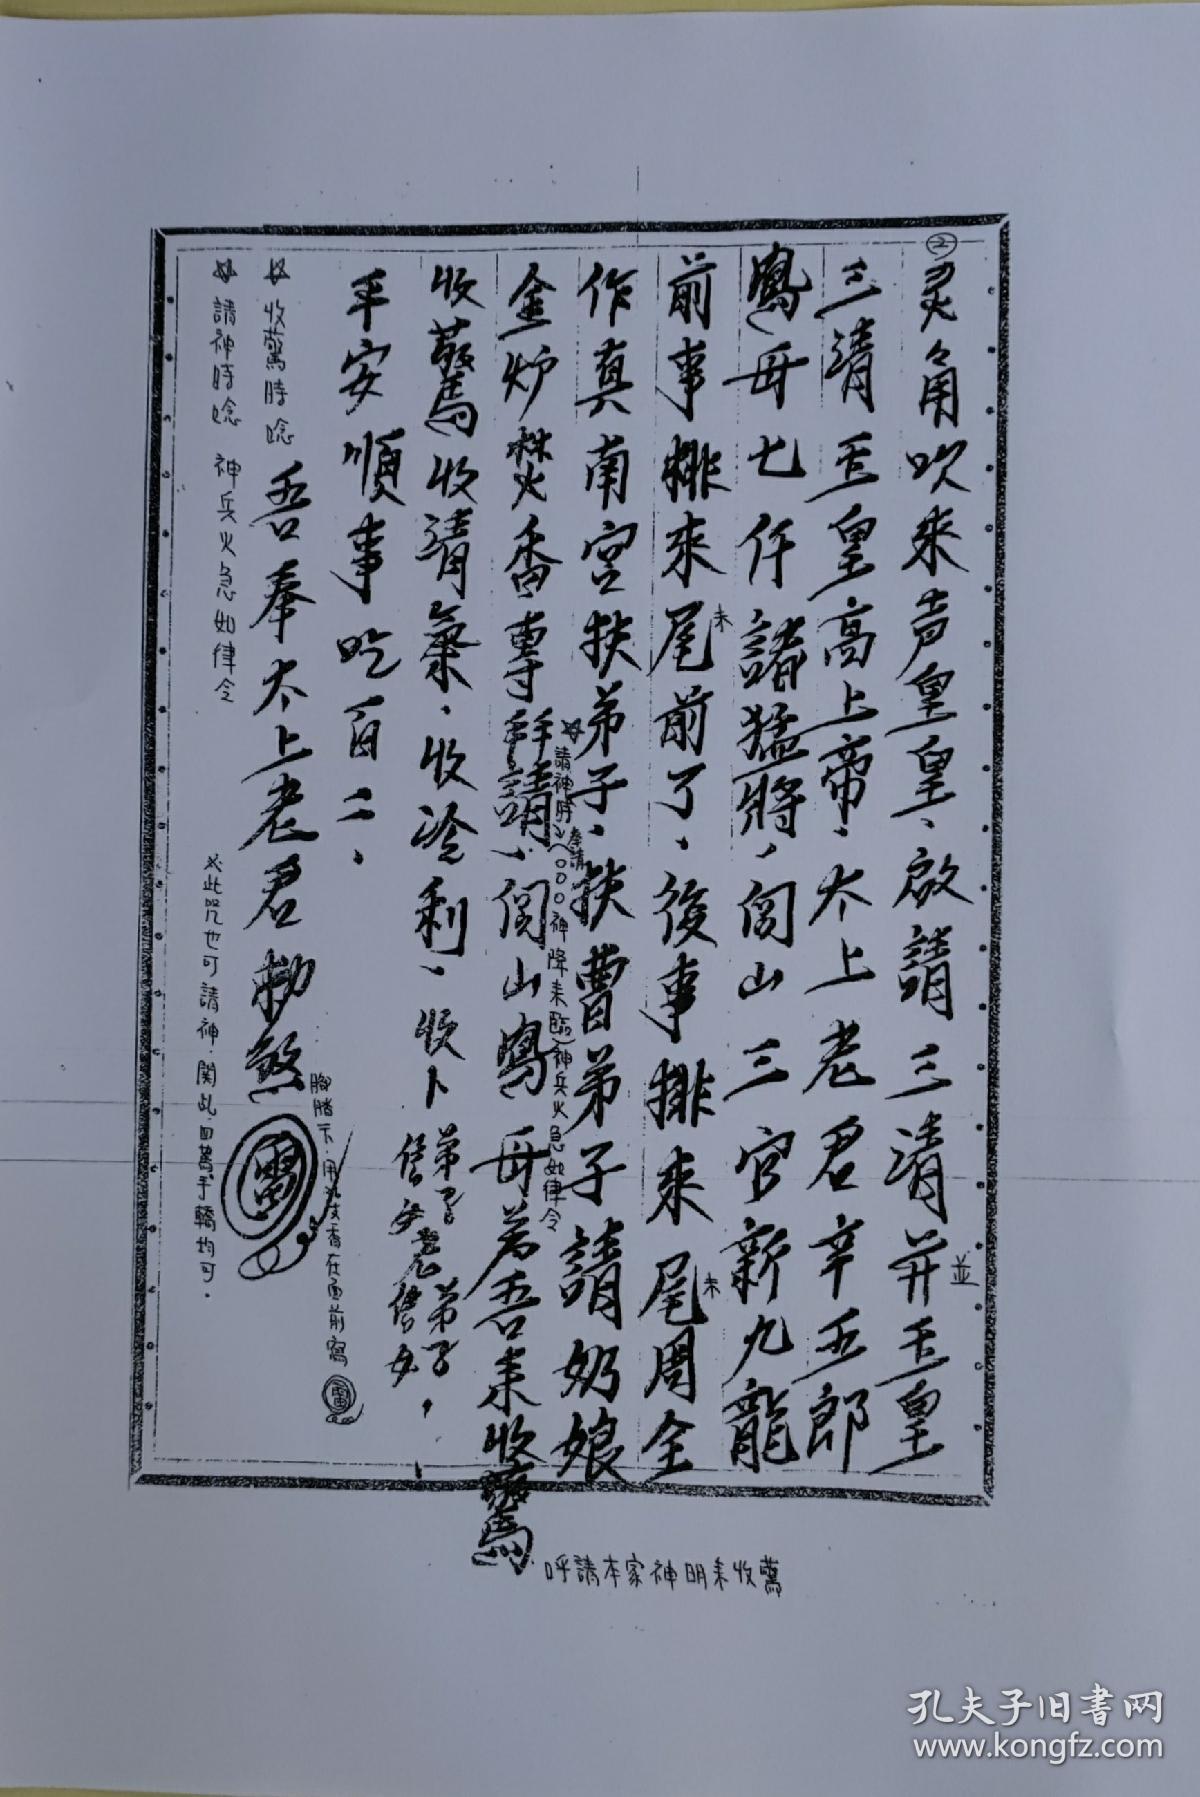 ②
灵角吹来声皇皇、啟請三清并玉皇
並
三清玉皇高上帝、太上老君辛五郎
鳳母七仟諸猛將，閭山三官新九龍
前事排来尾前了、後事排来尾周全
未
未
作真南宮扶弟子、扶曹弟子請奶娘
奉請
☆請神時(○○○○神降来臨)神兵火急如律令
金炉焚香專拜請、閭山鳳母為吾来收驚
收驚收清氣、收冷利、收卜弟子弟子，
信女信女
平安順事吃百二、
☆收驚時唸 吾奉太上老君勅煞
☆請神時唸 神兵火急如律令
※此咒也可請神．関乩．四萬．手轎均可．
用 香在面前寫
呼請本家神明来收驚
孔夫子旧书网
www.kongfz.com